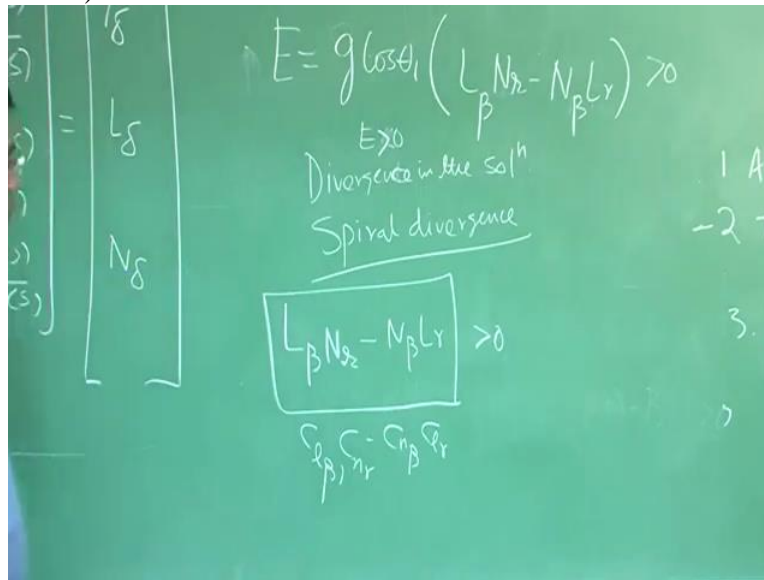 E = g Cosθ₁ ( L_β N_r - N_β L_r ) > 0
E > 0
Divergence in the solⁿ
Spiral divergence
L_β N_r - N_β L_r > 0
C_{l_β}, C_{n_r} - C_{n_β} C_{l_r}
s)
(s)
=
L_δ
N_δ
1 A
-2 -
3.